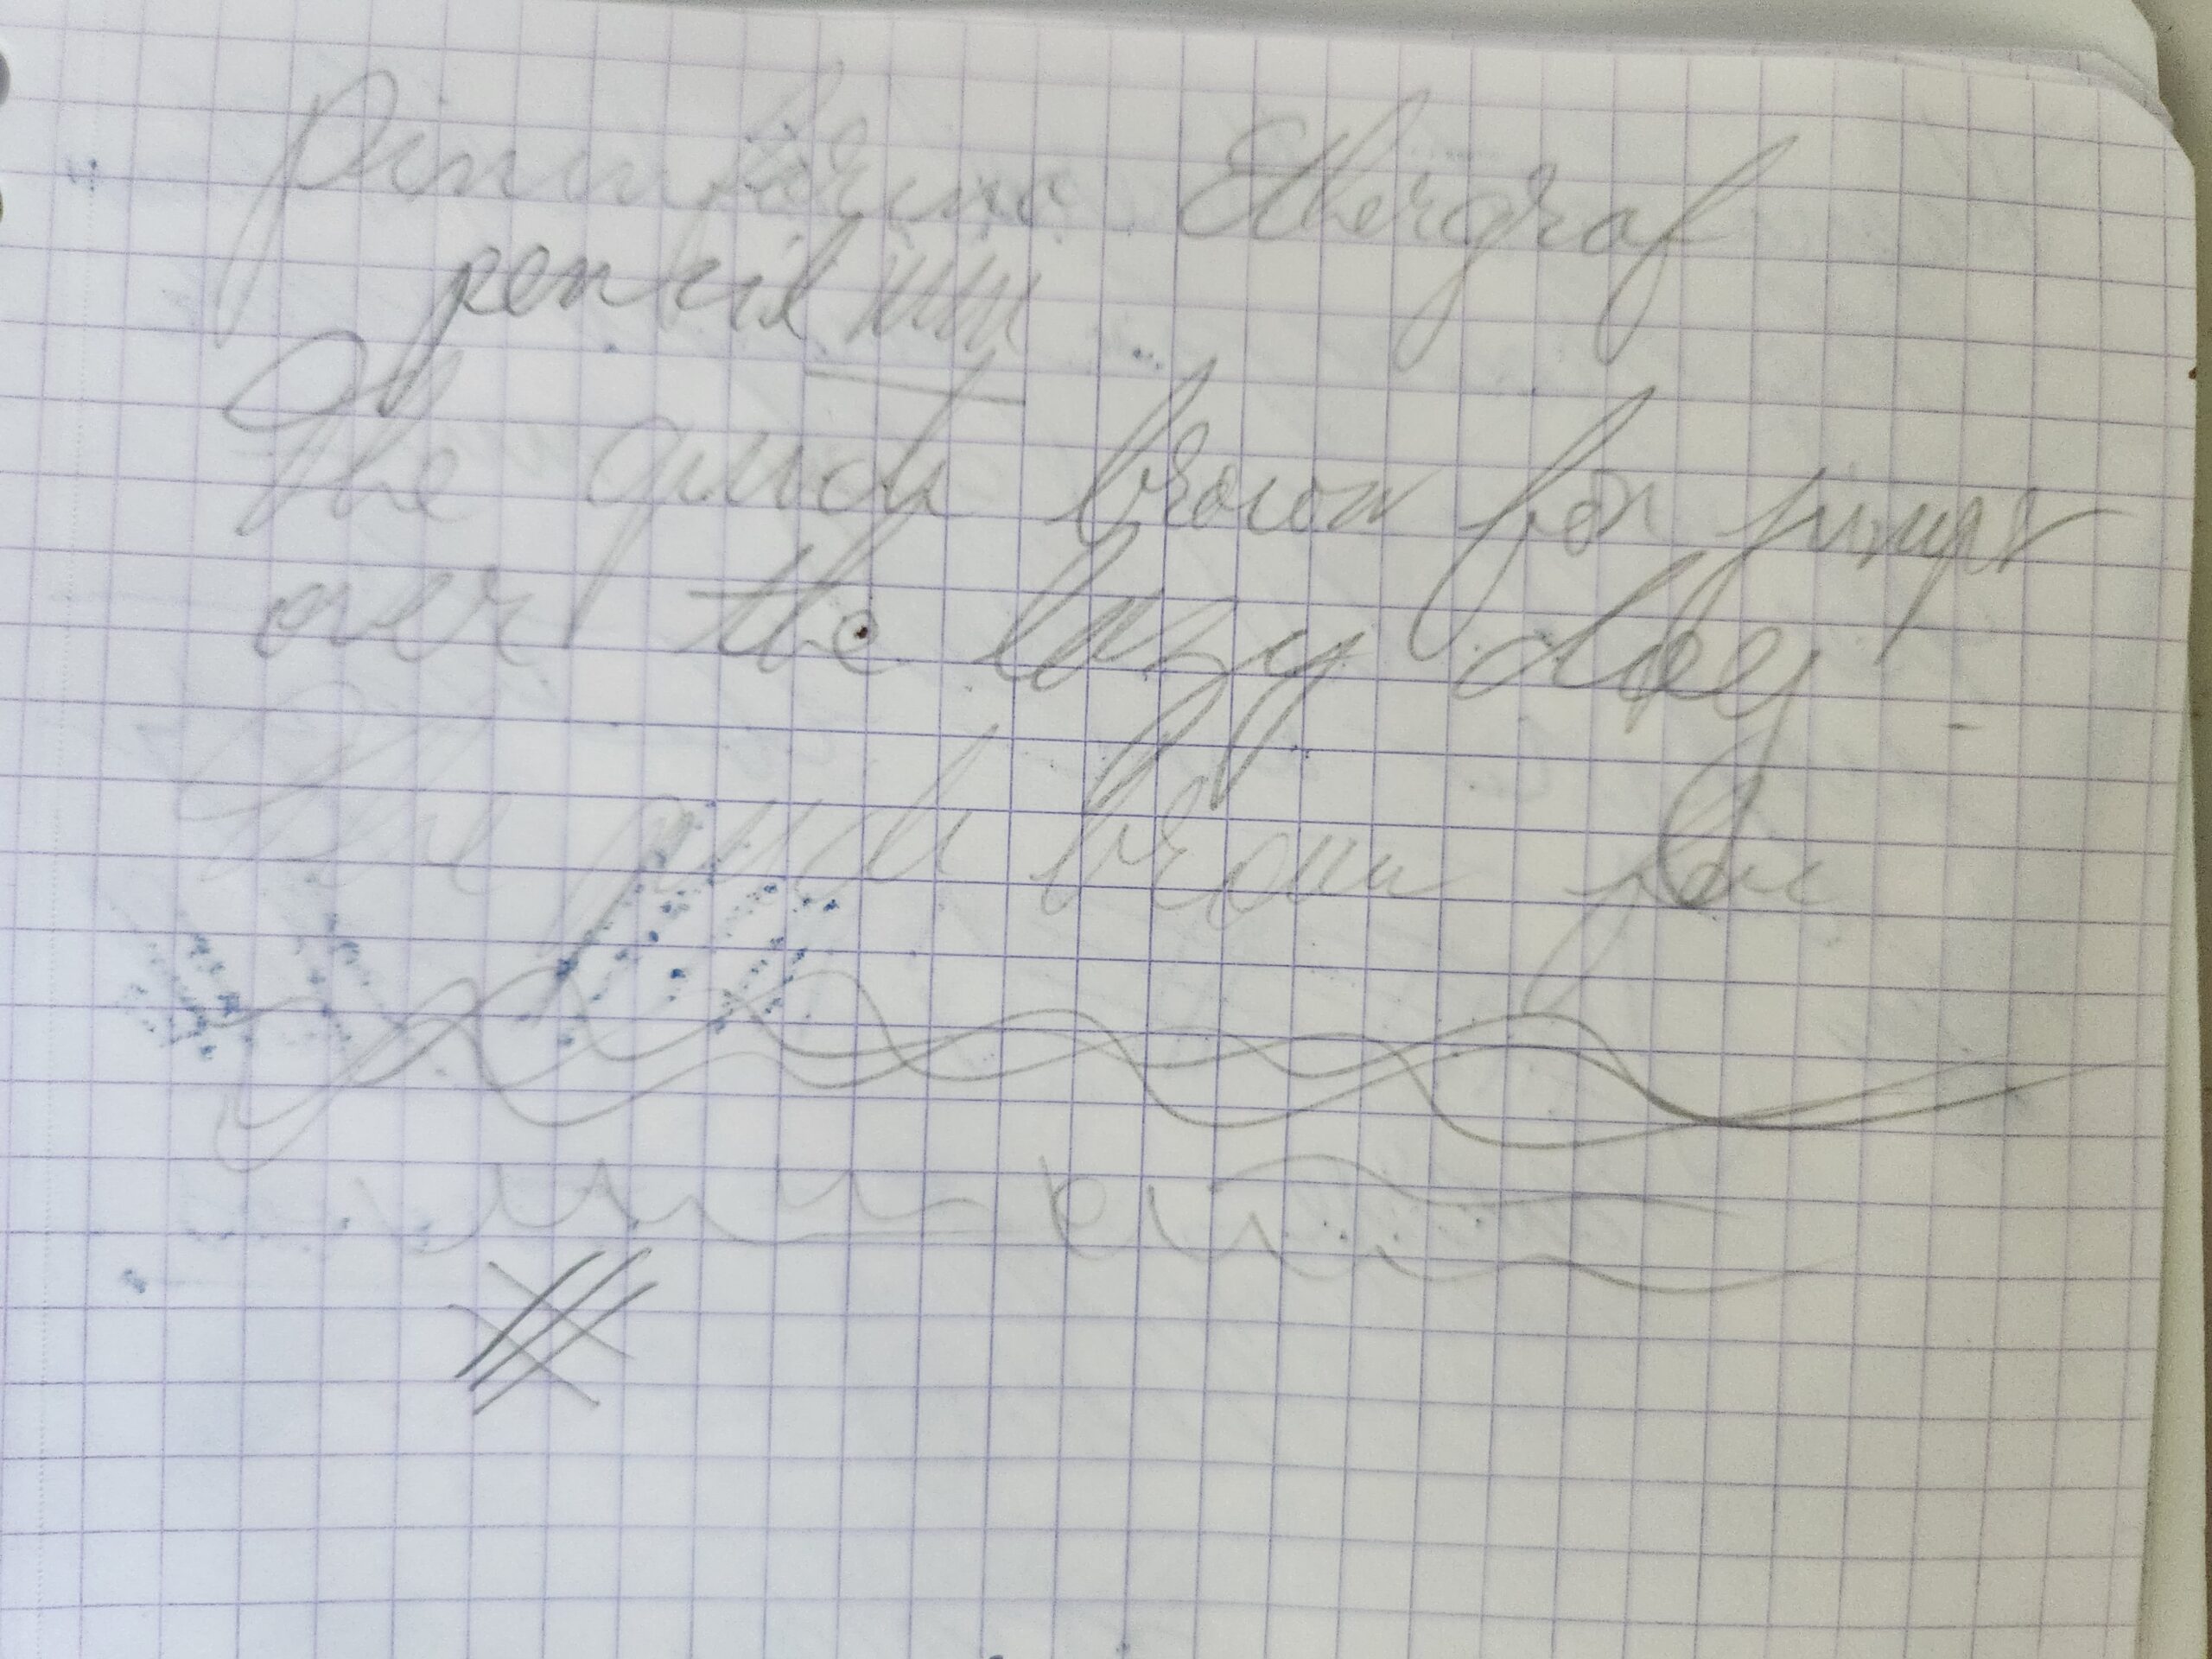 Pininfarina Ethergraf
pencil
The quick brown fox jumps
over the lazy dog
The quick brown fox